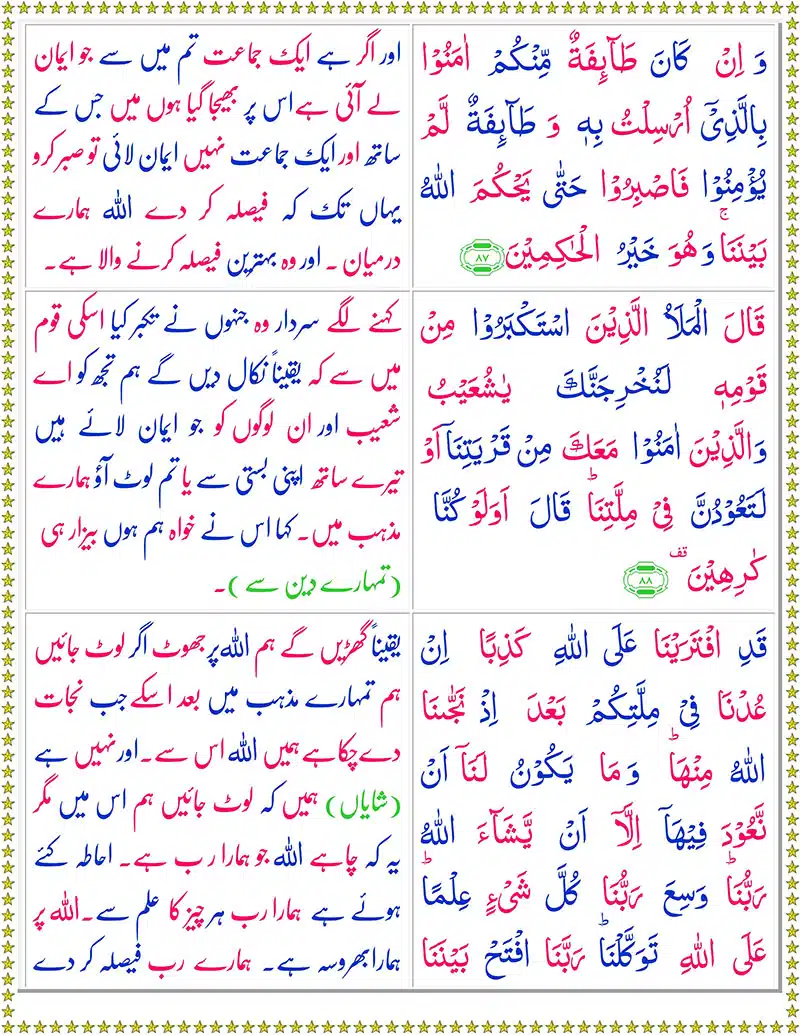 وَ اِنْ كَانَ طَآئِفَةٌ مِّنْكُمْ اٰمَنُوْا
بِالَّذِیْۤ اُرْسِلْتُ بِهٖ وَ طَآئِفَةٌ لَّمْ
یُؤْمِنُوْا فَاصْبِرُوْا حَتّٰی یَحْكُمَ اللّٰهُ
بَیْنَنَا ۚ وَ هُوَ خَیْرُ الْحٰكِمِیْنَ ﴿۸۷﴾
اور اگر ہے ایک جماعت تم میں سے جو ایمان
لے آئی ہے اس پر بھیجا گیا ہوں میں جس کے
ساتھ اور ایک جماعت نہیں ایمان لائی تو صبر کرو
یہاں تک کہ فیصلہ کر دے اللہ ہمارے
درمیان ۔ اور وہ بہترین فیصلہ کرنے والا ہے۔
قَالَ الْمَلَاُ الَّذِیْنَ اسْتَكْبَرُوْا مِنْ
قَوْمِهٖ لَنُخْرِجَنَّكَ یٰشُعَیْبُ
وَالَّذِیْنَ اٰمَنُوْا مَعَكَ مِنْ قَرْیَتِنَاۤ اَوْ
لَتَعُوْدُنَّ فِیْ مِلَّتِنَا ؕ قَالَ اَوَلَوْ كُنَّا
كٰرِهِیْنَ قف ﴿۸۸﴾
کہنے لگے سردار وہ جنہوں نے تکبر کیا اسکی قوم
میں سے کہ یقیناً نکال دیں گے ہم تجھ کو اے
شعیب اور ان لوگوں کو جو ایمان لائے ہیں
تیرے ساتھ اپنی بستی سے یا تم لوٹ آؤ ہمارے
مذہب میں۔ کہا اس نے خواہ ہم ہوں بیزار ہی
(تمہارے دین سے )۔
قَدِ افْتَرَیْنَا عَلَی اللّٰهِ كَذِبًا اِنْ
عُدْنَا فِیْ مِلَّتِكُمْ بَعْدَ اِذْ نَجّٰىنَا
اللّٰهُ مِنْهَا ؕ وَ مَا یَكُوْنُ لَنَاۤ اَنْ
نَّعُوْدَ فِیْهَاۤ اِلَّاۤ اَنْ یَّشَآءَ اللّٰهُ
رَبُّنَا ؕ وَسِعَ رَبُّنَا كُلَّ شَیْءٍ عِلْمًا ؕ
عَلَی اللّٰهِ تَوَكَّلْنَا ؕ رَبَّنَا افْتَحْ بَیْنَنَا
یقیناً گھڑیں گے ہم اللہ پر جھوٹ اگر لوٹ جائیں
ہم تمہارے مذہب میں بعد اسکے جب نجات
دے چکا ہے ہمیں اللہ اس سے۔ اور نہیں ہے
(شایاں) ہمیں کہ لوٹ جائیں ہم اس میں مگر
یہ کہ چاہے اللہ جو ہمارا رب ہے۔ احاطہ کئے
ہوئے ہے ہمارا رب ہر چیز کا علم سے۔ اللہ پر
ہمارا بھروسہ ہے۔ ہمارے رب فیصلہ کر دے